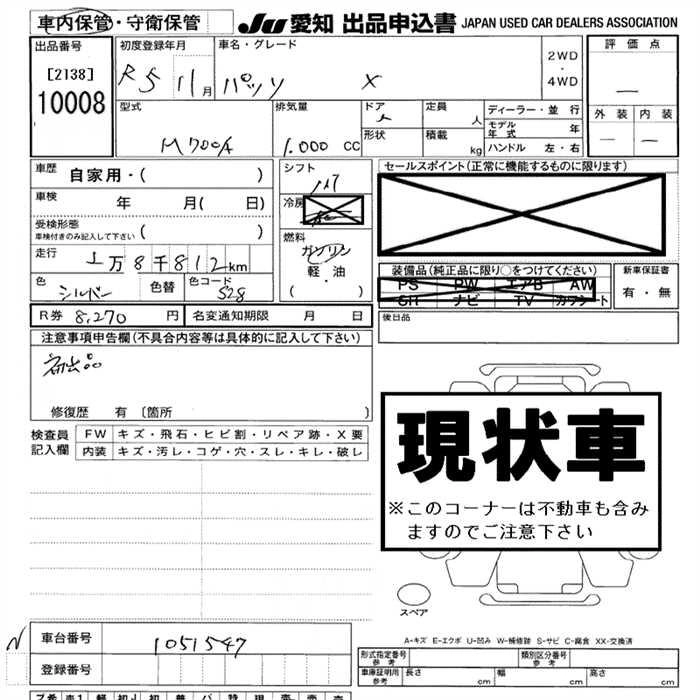 車内保管・守衛保管
JU 愛知 出品申込書 JAPAN USED CAR DEALERS ASSOCIATION
出品番号
[2138]
10008
初度登録年月
R5 11月
車名・グレード
パッソ X
2WD
・
4WD
評価点
—
外装 内装
— —
型式
M700A
排気量
1.000 CC
ドア
形状
定員
人
積載
kg
ディーラー・並行
モデル年式 年
ハンドル 左・右
車歴
自家用・( )
車検
年 月( 日)
受検形態
車検付きのみ記入して下さい ( )
走行
1万8千812km
色
シルバー
色替
色コード
S28
シフト
冷房
燃料
ガソリン
軽・油
( )
セールスポイント(正常に機能するものに限ります)
装備品(純正品に限り○をつけてください)
PS PW エアB AW
SR ナビ TV カワシート
新車保証書
有・無
R券 8,270 円
名変通知期限 月 日
後日品
注意事項申告欄(不具合内容等は具体的に記入して下さい)
初出品
修復歴 有 〔箇所 〕
検査員記入欄
FW キズ・飛石・ヒビ割・リペア跡・X要
内装 キズ・汚レ・コゲ・穴・スレ・キレ・破レ
現状車
※このコーナーは不動車も含み
ますのでご注意下さい
スペア
A-キズ E-エクボ U-凹み W-補修跡 S-サビ C-腐食 XX-交換済
N
車台番号 1051547
登録番号
形式指定番号 参考
類別区分番号 参考
車庫証明用 参考 長さ cm 幅 cm 高さ cm